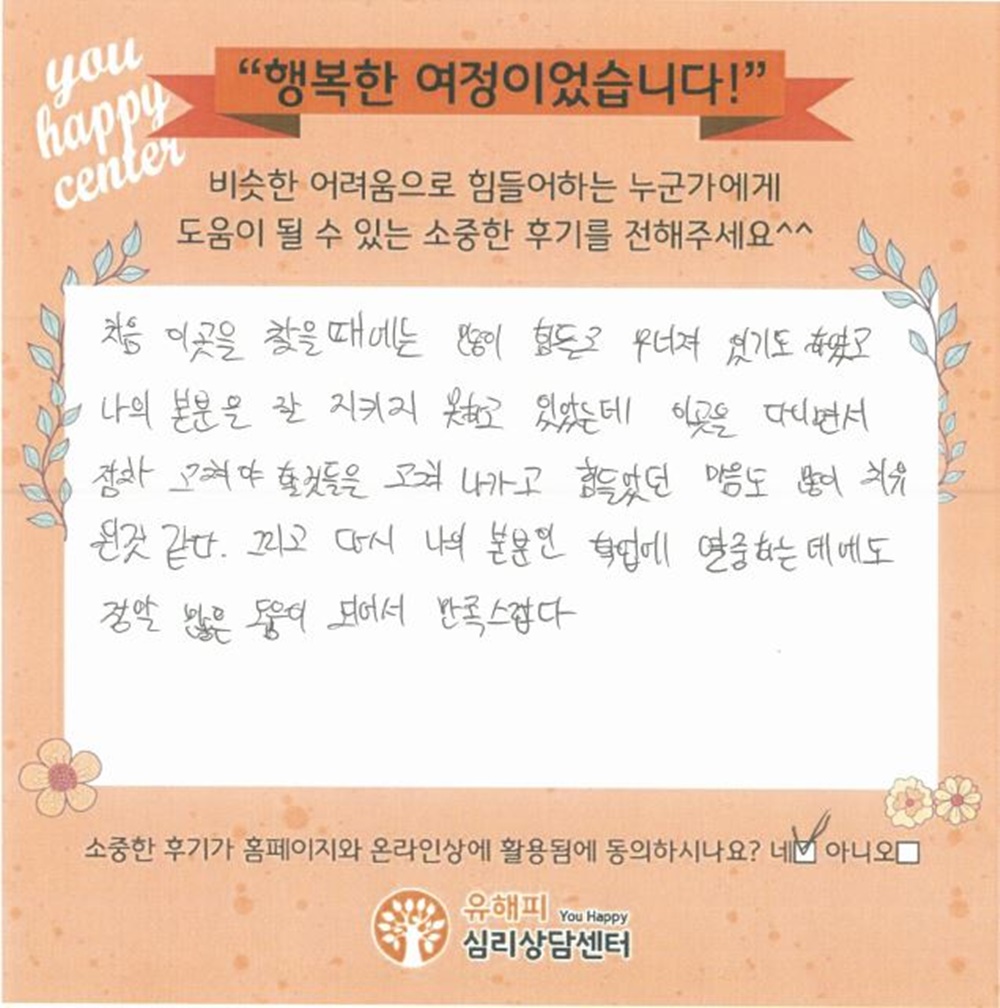 you
happy
center
“행복한 여정이었습니다!”
비슷한 어려움으로 힘들어하는 누군가에게
도움이 될 수 있는 소중한 후기를 전해주세요^^
처음 이곳을 찾을때에는 많이 힘든고 무너져 있기도 하였고
나의 본분을 잘 지키지 못하고 있었는데 이곳을 다니면서
점차 고쳐야 할것들을 고쳐 나가고 힘들었던 마음도 많이 치유
된것 같다. 그리고 다시 나의 본분인 학업에 열중하는데에도
정말 많은 도움이 되어서 만족스럽다
소중한 후기가 홈페이지와 온라인상에 활용됨에 동의하시나요? 네☑ 아니오☐
유해피 You Happy
심리상담센터